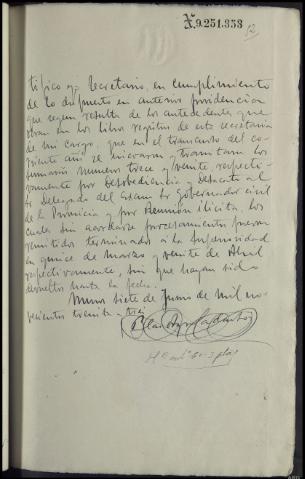 N.9.251.358
12
tifico yo, Secretario, en cumplimiento
de lo dispuesto en anterior providencia
que segun resulta de los antecedentes que
obran en los libros registro de esta secretaria
de mi cargo, que en el transcurso del co-
rriente año se incoaron y tramitan los
sumarios numeros trece y veinte, respecti-
vamente por Desobediencia y Desacato al
Sr Delegado del Excmo Sr Gobernador civil
de la Provincia y por Reunión ilicita, los
cuales sin acordarse procesamientos fueron
remitidos terminados a la Superioridad
en quince de Marzo y veinte de Abril
respectivamente, sin que hayan sido
devueltos hasta la fecha.
Muros siete de Junio de mil no-
vecientos treinta y tres